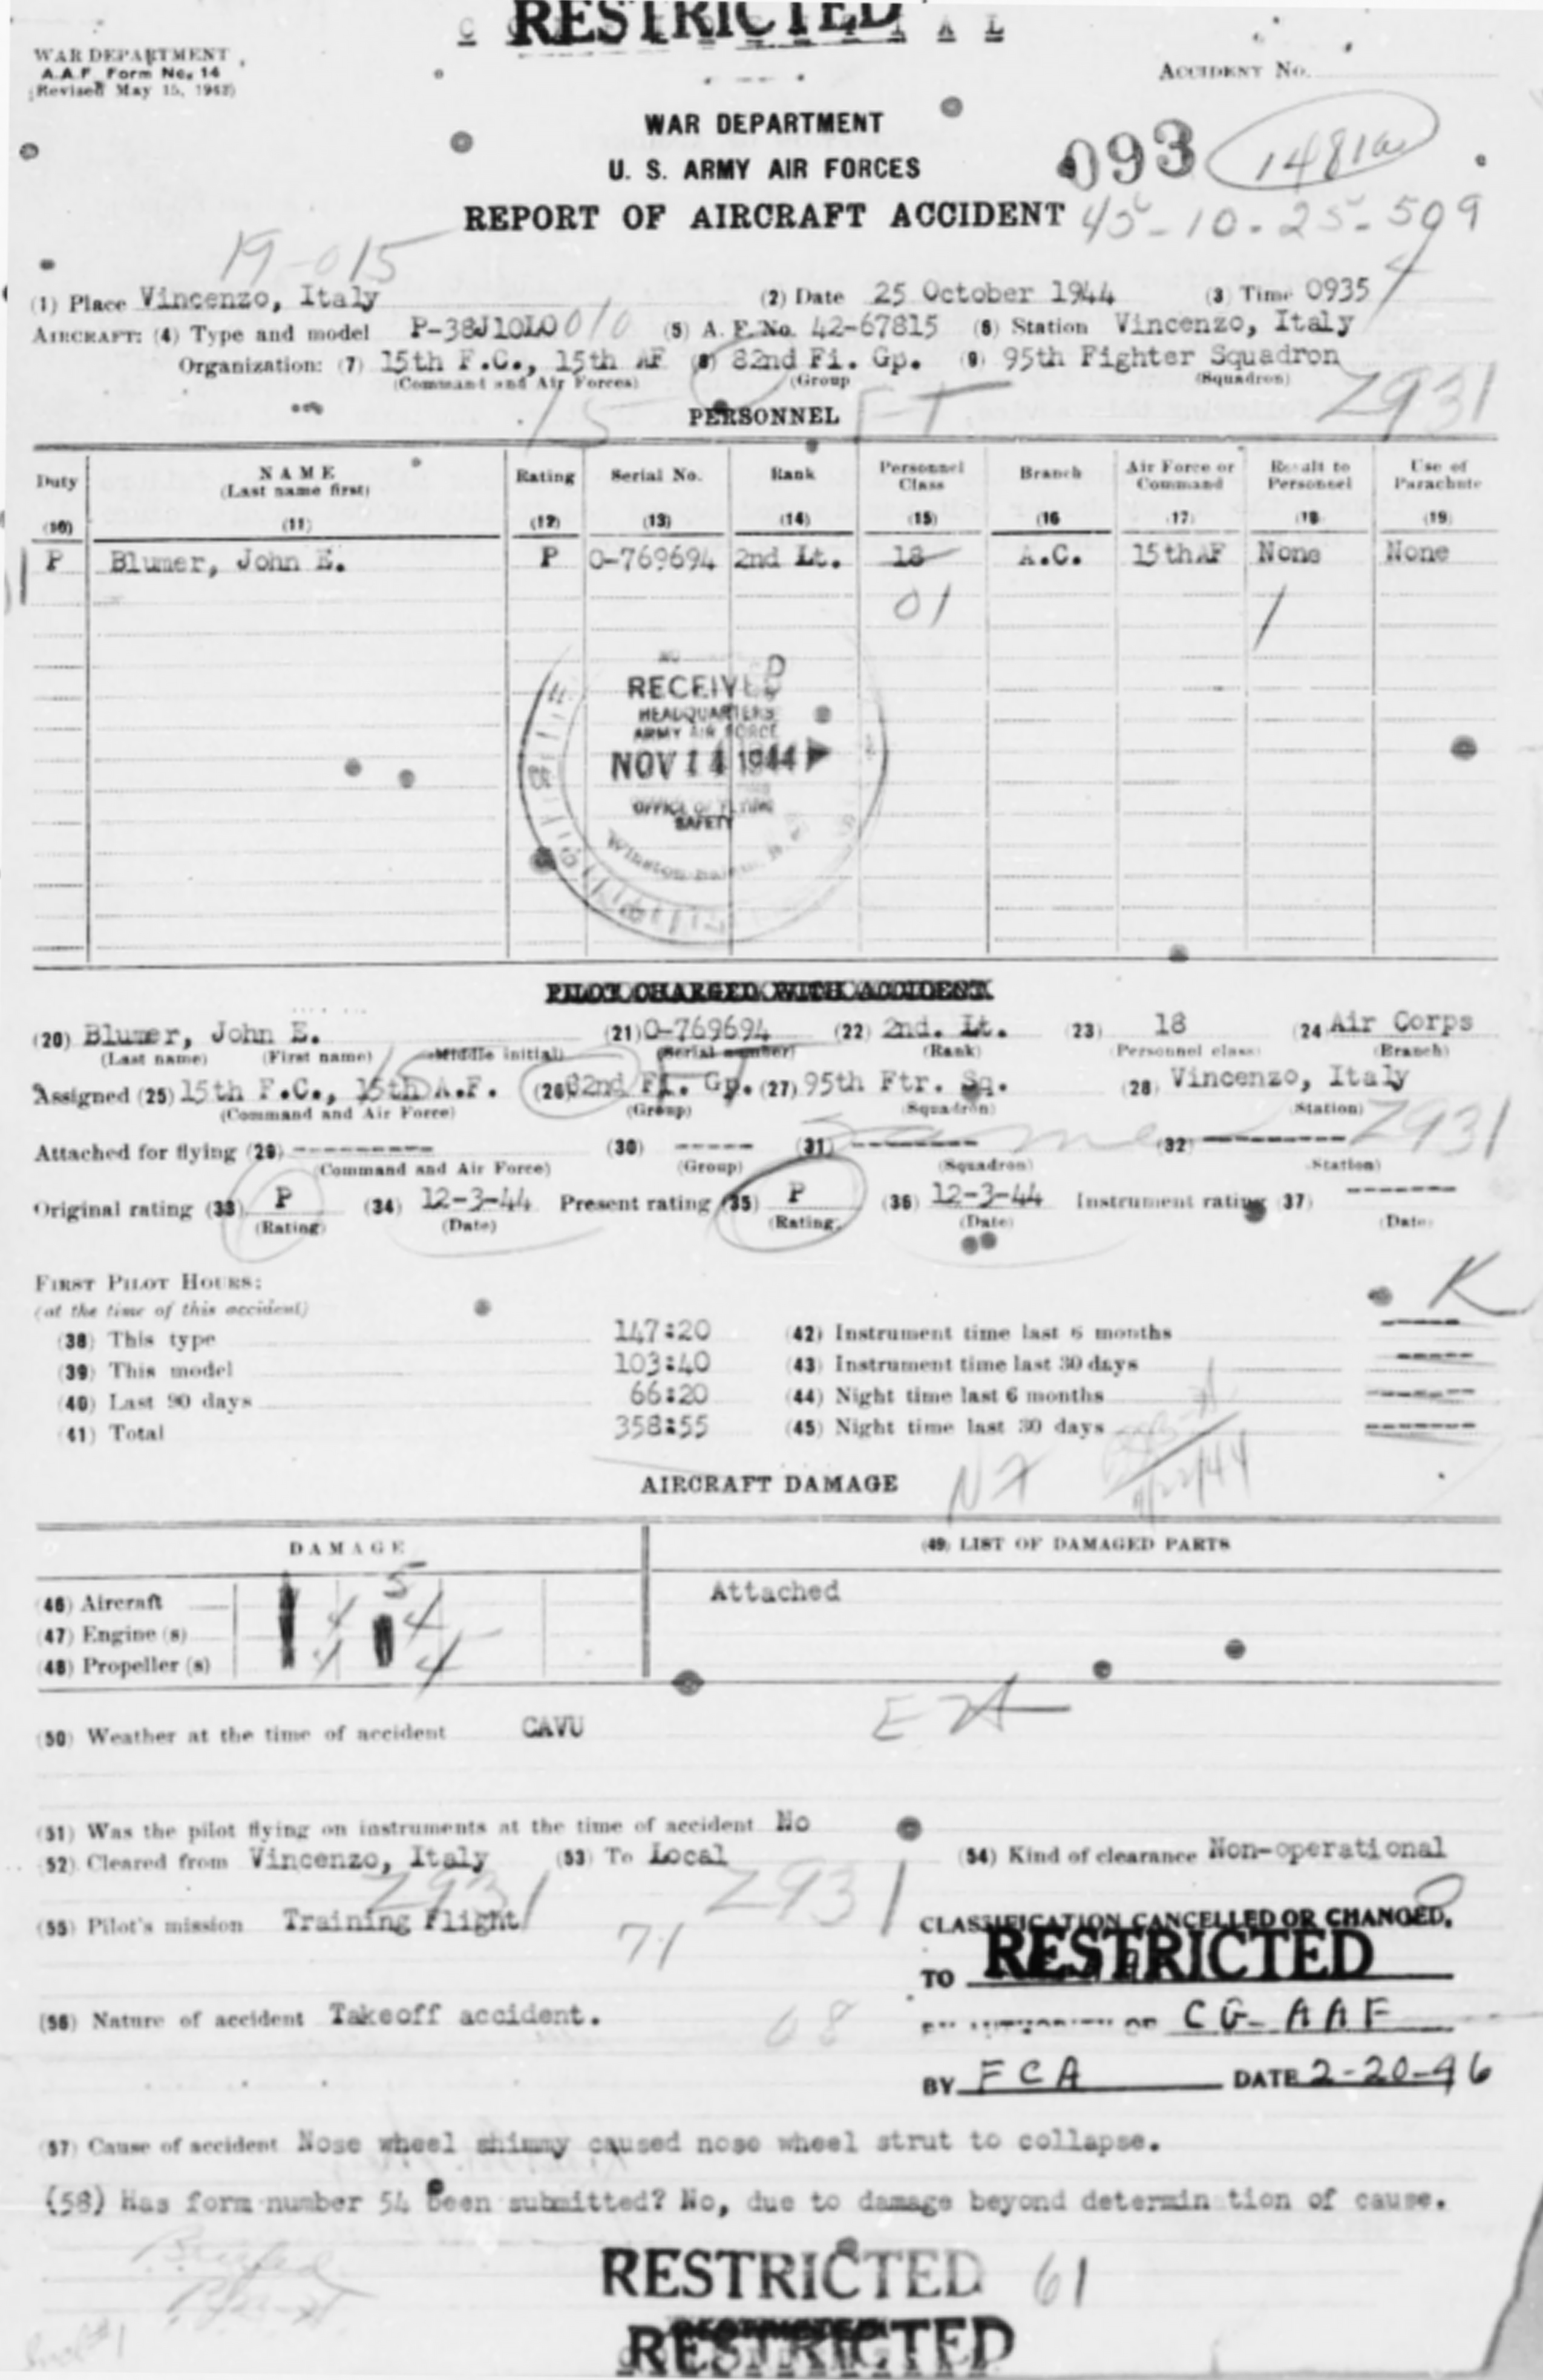 RESTRICTED
WAR DEPARTMENT
A.A.F. Form No. 14
(Revised May 15, 1942)
ACCIDENT No.
WAR DEPARTMENT
U. S. ARMY AIR FORCES
093
REPORT OF AIRCRAFT ACCIDENT 45-10-25-509
19-015
(1) Place Vincenzo, Italy (2) Date 25 October 1944 (3) Time 0935
AIRCRAFT: (4) Type and model P-38J10LO 010 (5) A. F. No. 42-67815 (6) Station Vincenzo, Italy
Organization: (7) 15th F.C., 15th AF (8) 82nd Fi. Gp. (9) 95th Fighter Squadron
(Command and Air Forces) (Group) (Squadron)
15 Z931
PERSONNEL
Duty NAME Rating Serial No. Rank Personnel Class Branch Air Force or Command Result to Personnel Use of Parachute
(Last name first)
(10) (11) (12) (13) (14) (15) (16) (17) (18) (19)
P Blumer, John E. P O-769694 2nd Lt. 18 A.C. 15thAF None None
01
RECEIVED
HEADQUARTERS
ARMY AIR FORCE
NOV 14 1944
OFFICE OF FLYING
SAFETY
Winston-Salem
PILOT CHARGED WITH ACCIDENT
(20) Blumer, John E. (21) O-769694 (22) 2nd. Lt. (23) 18 (24) Air Corps
(Last name) (First name) (Middle initial) (Serial number) (Rank) (Personnel class) (Branch)
Assigned (25) 15th F.C., 15th A.F. (26) 82nd Fi. Gp. (27) 95th Ftr. Sq. (28) Vincenzo, Italy
(Command and Air Force) (Group) (Squadron) (Station)
same Z931
Attached for flying (29) --------- (30) ----- (31) -------- (32) ---------
(Command and Air Force) (Group) (Squadron) (Station)
Original rating (33) P (34) 12-3-44 Present rating (35) P (36) 12-3-44 Instrument rating (37) -------
(Rating) (Date) (Rating) (Date) (Date)
FIRST PILOT HOURS:
(at the time of this accident)
K
(38) This type 147:20 (42) Instrument time last 6 months -----
(39) This model 103:40 (43) Instrument time last 30 days -----
(40) Last 90 days 66:20 (44) Night time last 6 months ------
(41) Total 358:55 (45) Night time last 30 days ------
AIRCRAFT DAMAGE
DAMAGE (49) LIST OF DAMAGED PARTS
5
(46) Aircraft 4 4 Attached
(47) Engine (s)
(48) Propeller (s) 4 4
(50) Weather at the time of accident CAVU
(51) Was the pilot flying on instruments at the time of accident No
(52) Cleared from Vincenzo, Italy (53) To Local (54) Kind of clearance Non-operational
Z931 Z931
(55) Pilot's mission Training Flight 71
CLASSIFICATION CANCELLED OR CHANGED.
TO RESTRICTED
(56) Nature of accident Takeoff accident. 68
BY AUTHORITY OF CG-AAF
BY FCA DATE 2-20-46
(57) Cause of accident Nose wheel shimmy caused nose wheel strut to collapse.
(58) Has form number 54 been submitted? No, due to damage beyond determination of cause.
RESTRICTED 61
RESTRICTED